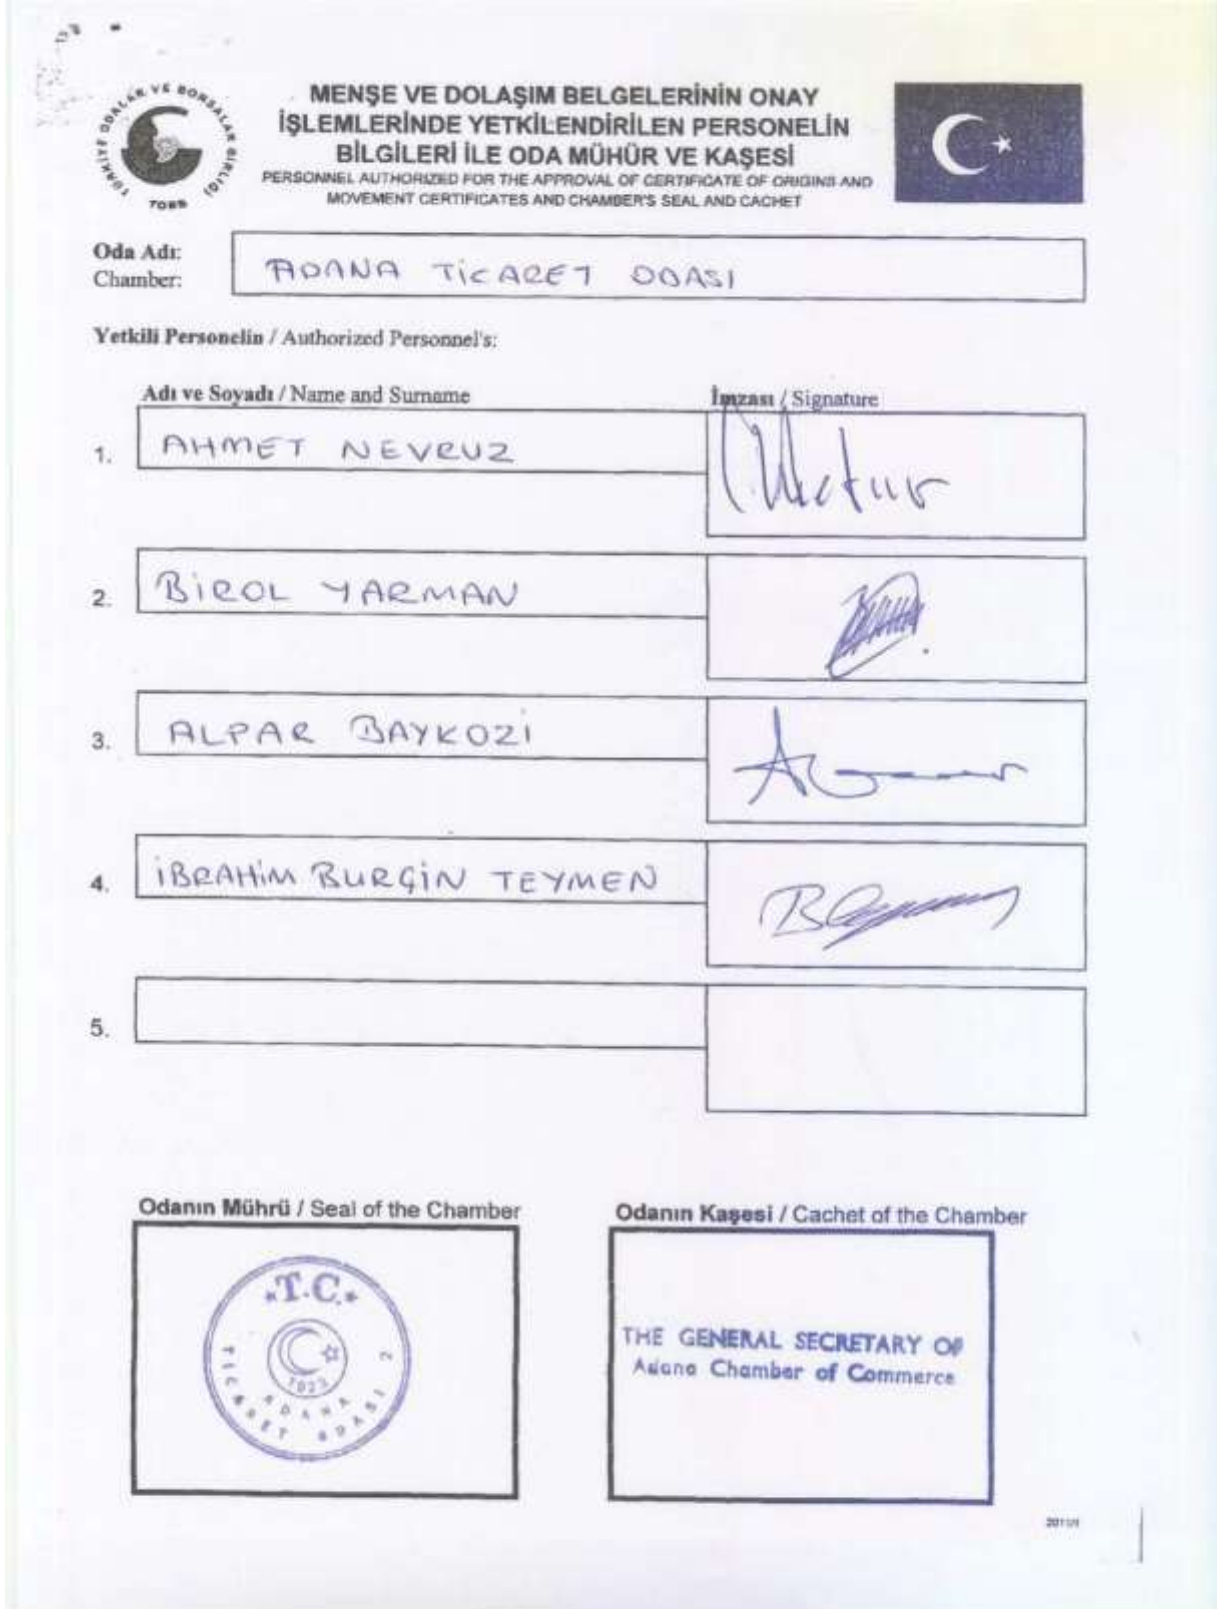 TÜRKİYE ODALAR VE BORSALAR BİRLİĞİ
TOBB
MENŞE VE DOLAŞIM BELGELERİNİN ONAY
İŞLEMLERİNDE YETKİLENDİRİLEN PERSONELİN
BİLGİLERİ İLE ODA MÜHÜR VE KAŞESİ
PERSONNEL AUTHORIZED FOR THE APPROVAL OF CERTIFICATE OF ORIGINS AND
MOVEMENT CERTIFICATES AND CHAMBER'S SEAL AND CACHET
Oda Adı:
Chamber:
ADANA TİCARET ODASI
Yetkili Personelin / Authorized Personnel's:
Adı ve Soyadı / Name and Surname
İmzası / Signature
1. AHMET NEVRUZ
2. BİROL YARMAN
3. ALPAR BAYKOZİ
4. İBRAHİM BURÇİN TEYMEN
5.
Odanın Mührü / Seal of the Chamber
Odanın Kaşesi / Cachet of the Chamber
T.C.
1923
ADANA
TİCARET ODASI 2
THE GENERAL SECRETARY OF
Adana Chamber of Commerce
2011/1